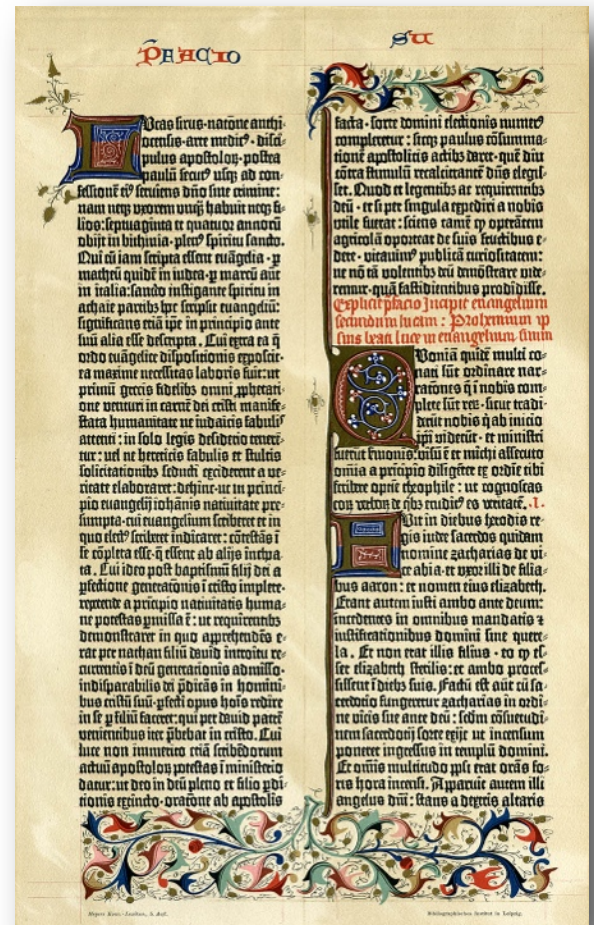 PFACIO
SU
Lucas sirus·natōne anthi-
ocensis·arte medic⁹·disci-
pulus apostoloꝝ·postea
paulū secut⁹ usqꝫ ad con-
fessionē ei⁹ seruiens dño sine crimine:
nam neqꝫ vxorem unqͣ habuit neqꝫ fi-
lios:septuaginta et quatuor annorū
obijt in bithinia·plen⁹ spiritu sancto.
Qui cū iam scripta essent euāgelia·ꝑ
matheū quidē in iudea·ꝑ marcū aūt
in italia:sancto instigante spiritu in
achaie partibꝫ hoc scripsit euangeliū:
significans etiā ipe in principio ante
suū alia esse descripta. Cui extra ea q̄
ordo euāgelice dispositionis exposcit·
ea maxime necessitas laboris fuit:ut
primū grecis fidelibꝫ omni ꝓphetati-
one venturi in carnē dei cristi manife-
stata humanitate ne iudaicis fabulis
attenti: in solo legis desiderio teneren-
tur: uel ne hereticis fabulis et stultis
solicitationibꝫ seducti exciderent a ve-
ritate elaboraret:dehinc·ut in princi-
pio euangelij iohānis natiuitate pre-
sumpta·cui euangelium scriberet et in
quo elect⁹ scriberet indicaret: cōtestās ī
se cōpleta esse·q̄ essent ab alijs incepa-
ta. Cui ideo post baptismū filij dei a
ꝑfectione generatōnis ī cristo implete·
repetende a pricipio natiuitatis huma-
ne potestas ꝑmissa ē: ut requirentibꝫ
demonstraret in quo apprehendēs e-
rat per nathan filiū dauid introitu re-
currentis ī deū generationis admisso·
indisparabilis dei ꝑdicās in homini-
bus cristū suū·ꝑfecti opus hois redire
in se ꝑ filiū faceret:qui per dauid patrē
venientibus iter ꝑbebat in cristo. Cui
luce non immerito etiā scribēdorum
actuū apostoloꝝ potestas ī ministerio
datur:ut deo in deū pleno et filio ꝓdi-
tionis extincto·oratōne ab apostolis
facta·sorte domini electionis numer⁹
completetur: sicqꝫ paulus cōsumma-
tionē apostolicis actibꝫ daret·quē diu
cōtra stimulū recalcitrantē dñs elegis-
set. Quod et legentibꝫ ac requirentibꝫ
deū·et si per singula expediri a nobis
vtile fuerat: sciens tamē ꝙ operātem
agricolā oporteat de suis fructibus e-
dere·vitauim⁹ publicā curiositatem:
ne nō tā volentibꝫ deū demōstrare vide-
remur·quā fastidientibus prodidisse.
Explicit pfacio Incipit euangelium
secundum lucam: Prohemium ip-
sius beati luce in euangelium suum
Quoniā quidē multi co-
nati sūt ordinare nar-
rationes q̄ i nobis com-
plete sūt reꝝ·sicut tradi-
derūt nobis q̇ ab inicio
ipi viderūt·et ministri
fuerūt sermonis:visū ē et michi assecuto
omīa a prīcipio diligēter ex ordīe tibi
scribere optīe theophile: ut cognoscas
eoꝝ verboꝝ de qͥbꝫ erudit⁹ es veritatē. .I.
Fuit in diebus herodis re-
gis iude sacerdos quidam
nomine zacharias de vi-
ce abia·et vxor illi de filia-
bus aaron: et nomen eius elizabeth.
Erant autem iusti ambo ante deum:
incedentes in omnibus mandatis ⁊
iustificationibus domini sine quere-
la. Et non erat illis filius·eo ꝙ es-
set elizabeth sterilis: et ambo proces-
sissent ī diebꝫ suis. Factū est aūt cū sa-
cerdotio fungeretur zacharias in ordi-
ne vicis sue ante deū: scdm cōsuetudi-
nem sacerdocij sorte exijt ut incensum
poneret ingressus in templū domini.
Et omīs multitudo ppli erat orās fo-
ris hora incensi. Apparuit autem illi
angelus dñi: stans a dextris altaris
Meyers Konv.-Lexikon, 5. Aufl.
Bibliographisches Institut in Leipzig.